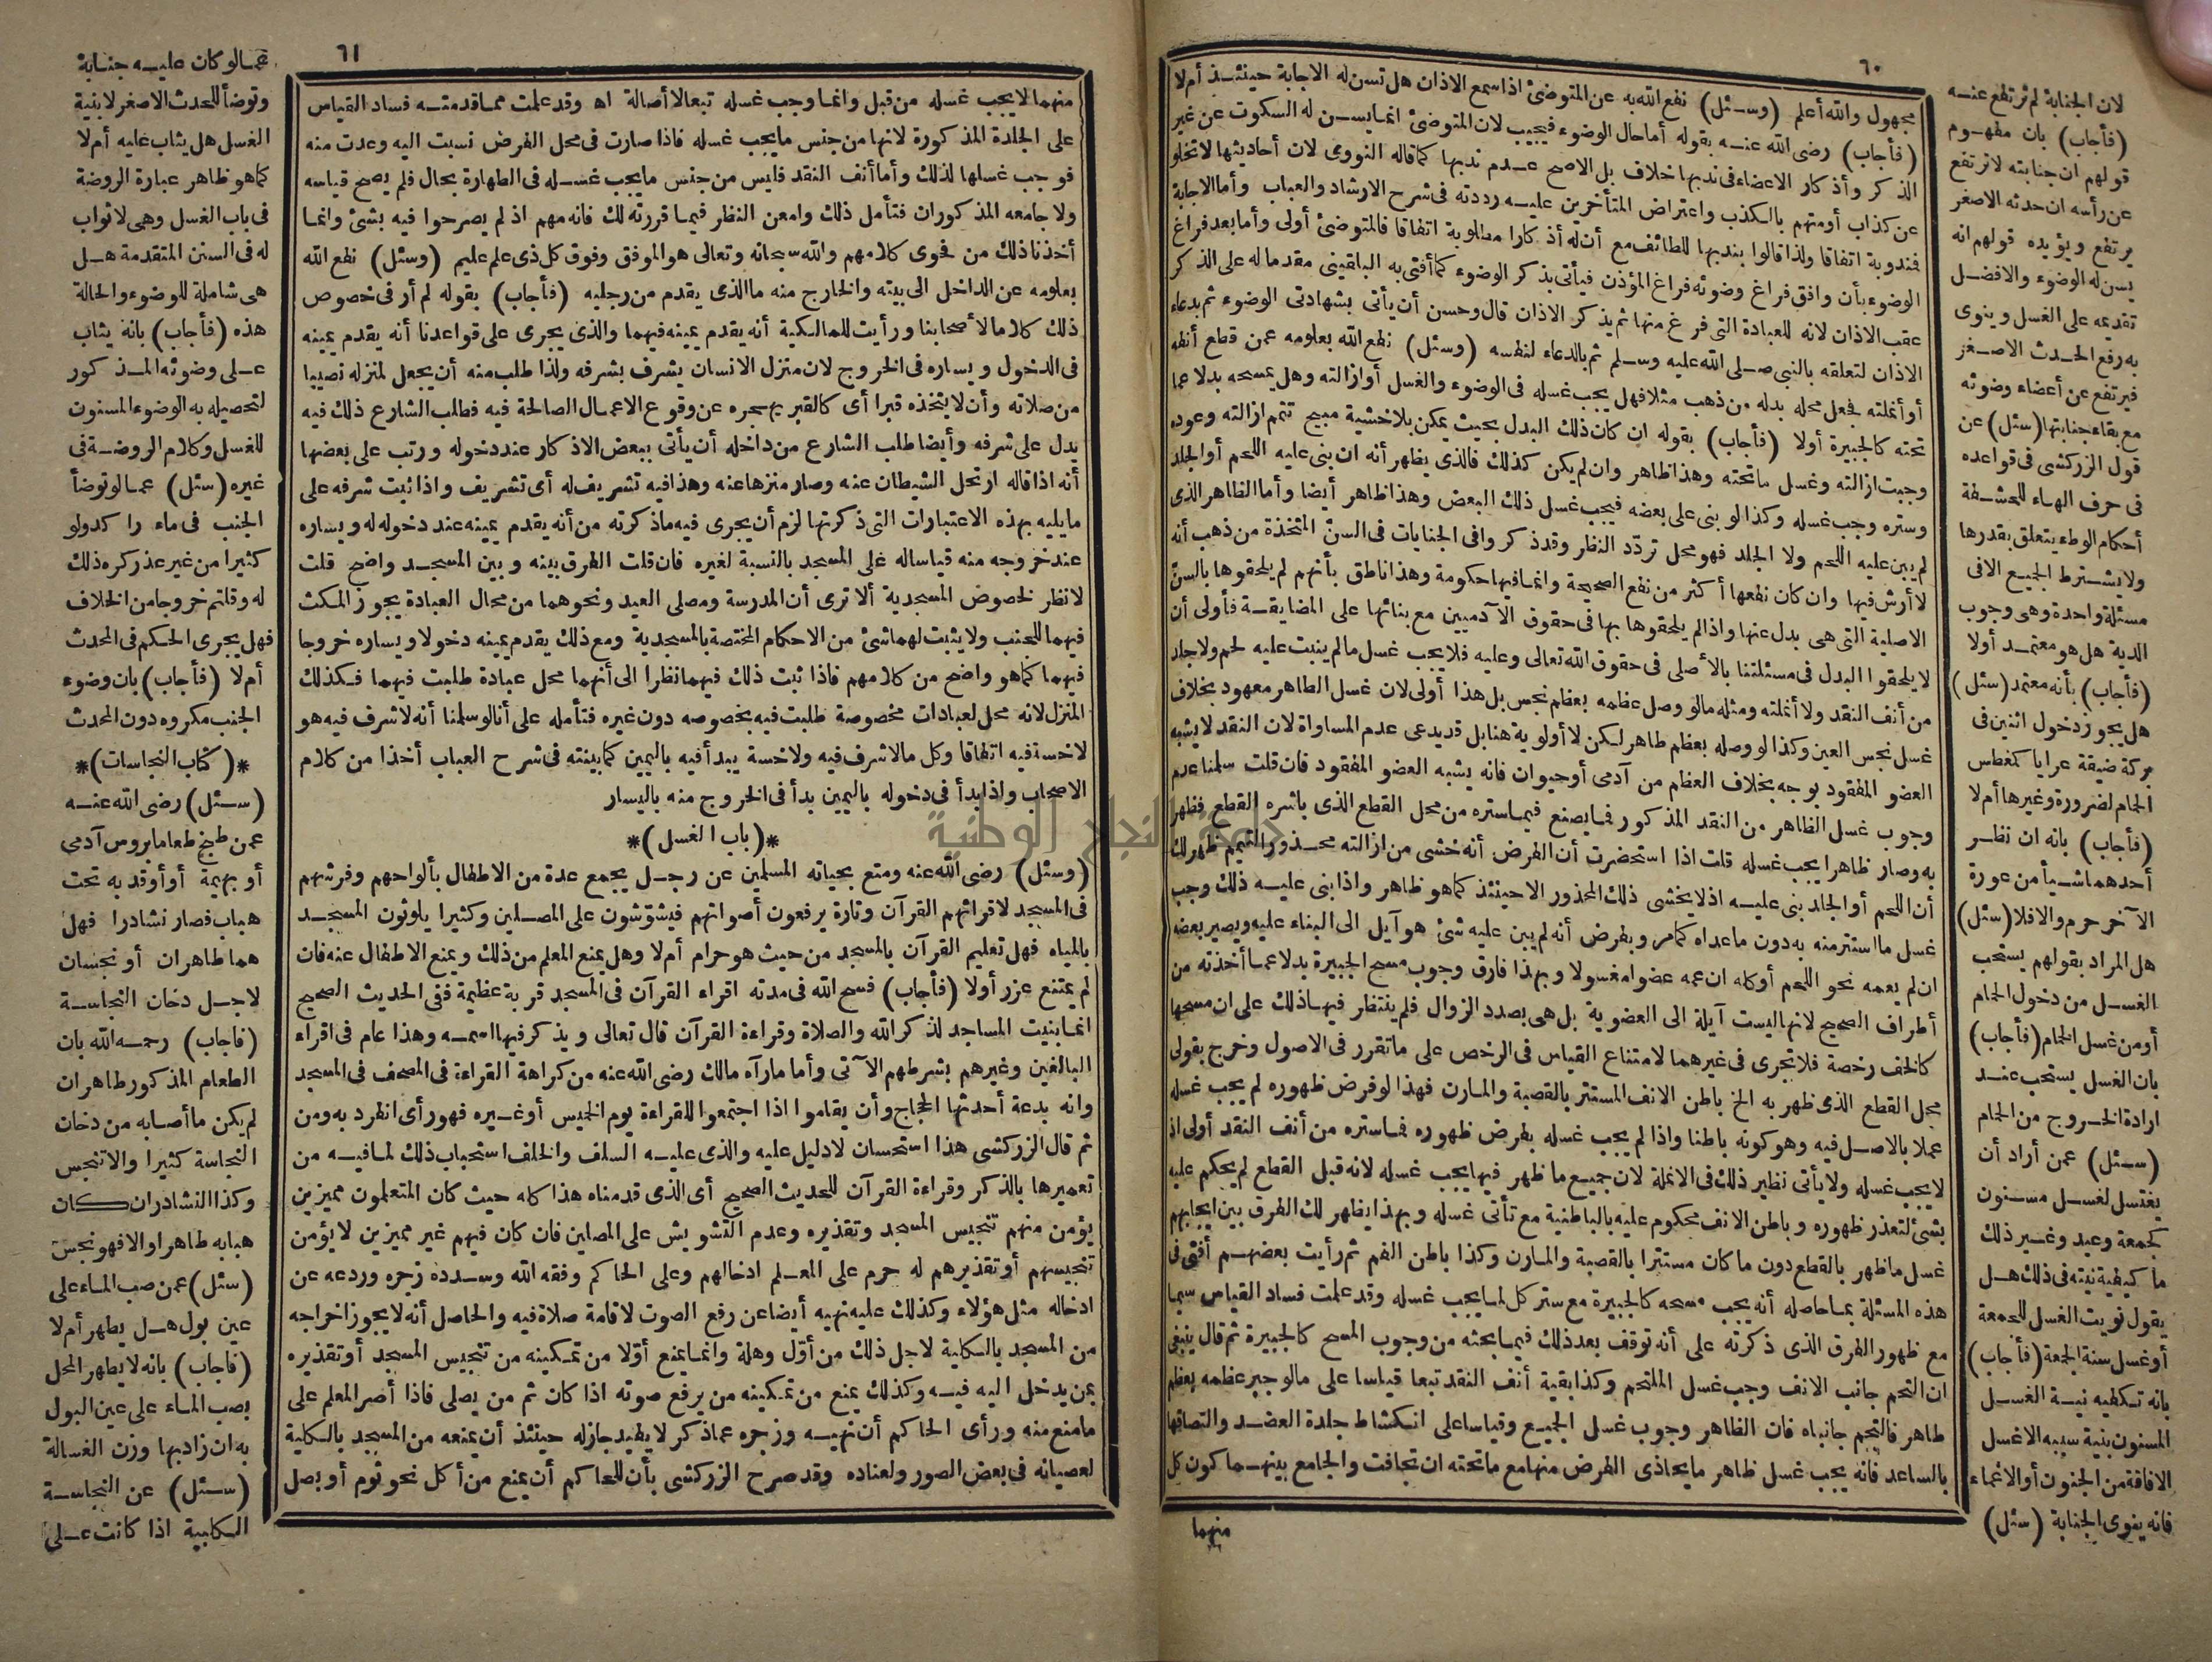 ٦٠
مجهول والله أعلم (وسئل) نفع الله به عن المتوضئ اذا سمع الاذان هل تسن له الاجابة حينئذ أم لا
(فأجاب) رضى الله عنه بقوله أما حال الوضوء فيجيب لان المتوضئ انما يسن له السكوت عن غير
الذكر وأذكار الاعضاء فى ندبها خلاف بل الاصح عدم ندبها كما قاله النووى لان أحاديثها لا تخلو
عن كذاب أو متهم بالكذب واعتراض المتأخرين عليه رددته فى شرح الارشاد والعباب وأما الاجابة
فندوبة اتفاقا ولذا قالوا بندبها للطائف مع أن له أذكارا مطلوبة اتفاقا فالمتوضئ أولى وأما بعد فراغ
الوضوء بأن وافق فراغ وضوئه فراغ المؤذن فيأتى بذكر الوضوء كما أفتى به البلقينى مقدما له على الذكر
عقب الاذان لانه للعبادة التى فرغ منها ثم يذكر الاذان قال وحسن أن يأتى بشهادتى الوضوء ثم بدعاء
الاذان لتعلقه بالنبى صلى الله عليه وسلم ثم بالدعاء لنفسه (وسئل) نفع الله بعلومه عمن قطع أنفه
أو أنملته فجعل محله بدله من ذهب مثلا فهل يجب غسله فى الوضوء والغسل أو ازالته وهل يمسحه بدلا عما
تحته كالجبيرة أولا (فأجاب) بقوله ان كان ذلك البدل بحيث يمكن بلا خشية مبيح تيمم ازالته وعوده
وجبت ازالته وغسل ما تحته وهذا ظاهر وان لم يكن كذلك فالذى يظهر أنه ان بنى عليه اللحم أو الجلد
وستره وجب غسله وكذا لو بنى على بعضه فيجب غسل ذلك البعض وهذا ظاهر أيضا وأما الظاهر الذى
لم يبن عليه اللحم ولا الجلد فهو محل تردّد النظر وقد ذكروا فى الجنايات فى السن المتخذة من ذهب أنه
لا أرش فيها وان كان نفعها أكثر من نفع الصحيحة وانما فيها حكومة وهذا ناطق بأنهم لم يلحقوها بالسنّ
الاصلية التى هى بدل عنها واذا لم يلحقوها بها فى حقوق الآدميين مع بنائها على المضايقة فأولى أن
لا يلحقوا البدل فى مسئلتنا بالأصلى فى حقوق الله تعالى وعليه فلا يجب غسل ما لم ينبت عليه لحم ولا جلد
من أنف النقد ولا أنملته ومثله ما لو وصل عظمه بعظم نجس بل هذا أولى لان غسل الطاهر معهود بخلاف
غسل نجس العين وكذا لو وصله بعظم طاهر لكن لا أولوية هنا بل قد يدعى عدم المساواة لان النقد لا يشبه
العضو المفقود بوجه بخلاف العظم من آدمى أو حيوان فانه يشبه العضو المفقود فان قلت سلمنا عدم
وجوب غسل الظاهر من النقد المذكور فما يصنع فيما ستره من محل القطع الذى باشره القطع فظهر
به وصار ظاهرا يجب غسله قلت اذا استحضرت أن الفرض أنه خشى من ازالته محذور التيمم ظهر لك
أن اللحم أو الجلد بنى عليه اذ لا يخشى ذلك المحذور الا حينئذ كما هو ظاهر واذا بنى عليه ذلك وجب
غسل ما استتر منه به دون ما عداه كما مر وبفرض أنه لم يبن عليه شئ هو آيل الى البناء عليه ويصير بعضه
ان لم يعمه نحو اللحم أو كله ان عمه عضوا مغسولا وبهذا فارق وجوب مسح الجبيرة بدلا عما أخذته من
أطراف الصحيح لانها ليست آيلة الى العضوية بل هى بصدد الزوال فلم ينتظر فيها ذلك على ان مسحها
كالخف رخصة فلا تجرى فى غيرهما لامتناع القياس فى الرخص على ما تقرر فى الاصول وخرج بقولى
محل القطع الذى ظهر به الخ باطن الانف المستتر بالقصبة والمارن فهذا لو فرض ظهوره لم يجب غسله
عملا بالاصل فيه وهو كونه باطنا واذا لم يجب غسله بفرض ظهوره فما ستره من أنف النقد أولى اذ
لا يجب غسله ولا يأتى نظير ذلك فى الانملة لان جميع ما ظهر فيها يجب غسله لانه قبل القطع لم يحكم عليه
بشئ لتعذر ظهوره وباطن الانف محكوم عليه بالباطنية مع تأتى غسله وبهذا يظهر لك الفرق بين ايجابهم
غسل ما ظهر بالقطع دون ما كان مستترا بالقصبة والمارن وكذا باطن الفم ثم رأيت بعضهم أفتى فى
هذه المسئلة بما حاصله أنه يجب مسحه كالجبيرة مع ستر كل لما يجب غسله وقد علمت فساد القياس سيما
مع ظهور الفرق الذى ذكرته على أنه توقف بعد ذلك فيما بحثه من وجوب المسح كالجبيرة ثم قال ينبغى
ان التحم جانب الانف وجب غسل الملتحم وكذا بقية أنف النقد تبعا قياسا على ما لو جبر عظمه بعظم
طاهر فالتحم جانباه فان الظاهر وجوب غسل الجميع وقياسا على انكشاط جلدة العضد والتصاقها
بالساعد فانه يجب غسل ظاهر ما يحاذى الفرض منها مع ما تحته ان تجافت والجامع بينهما كون كل
منهما
لان الجنابة لم ترتفع عنه
(فأجاب) بان مفهوم
قولهم ان جنابته لا ترتفع
عن رأسه ان حدثه الاصغر
يرتفع ويؤيده قولهم انه
يسن له الوضوء والافضل
تقديمه على الغسل وينوى
به رفع الحدث الاصغر
فيرتفع عن أعضاء وضوئه
مع بقاء جنابتها (سئل) عن
قول الزركشى فى قواعده
فى حرف الهاء للحشفة
أحكام الوطء يتعلق بقدرها
ولا يشترط الجميع الا فى
مسئلة واحدة وهى وجوب
الدية هل هو معتمد أولا
(فأجاب) بأنه معتمد (سئل)
هل يجوز دخول اثنين فى
بركة ضيقة عرايا كمغطس
الحمام لضرورة وغيرها أم لا
(فأجاب) بانه ان نظر
أحدهما شيأ من عورة
الآخر حرم والا فلا (سئل)
هل المراد بقولهم يستحب
الغسل من دخول الحمام
أو من غسل الحمام (فأجاب)
بان الغسل يستحب عند
ارادة الخروج من الحمام
(سئل) عمن أراد أن
يغتسل لغسل مسنون
كجمعة وعيد وغير ذلك
ما كيفية نيته فى ذلك هل
يقول نويت الغسل للجمعة
أو غسل سنة الجمعة (فأجاب)
بانه تكفيه نية الغسل
المسنون بنية سببه الا غسل
الافاقة من الجنون أو الاغماء
فانه ينوى الجنابة (سئل)
٦١
منهما لا يجب غسله من قبل وانما وجب غسله تبعا لا أصالة اه وقد علمت مما قدمته فساد القياس
على الجلدة المذكورة لانها من جنس ما يجب غسله فاذا صارت فى محل الفرض نسبت اليه وعدت منه
فوجب غسلها لذلك وأما أنف النقد فليس من جنس ما يجب غسله فى الطهارة بحال فلم يصح قياسه
ولا جامعه المذكوران فتأمل ذلك وامعن النظر فيما قررته لك فانه مهم اذ لم يصرحوا فيه بشئ وانما
أخذنا ذلك من فحوى كلامهم والله سبحانه وتعالى هو الموفق وفوق كل ذى علم عليم (وسئل) نفع الله
بعلومه عن الداخل الى بيته والخارج منه ما الذى يقدم من رجليه (فأجاب) بقوله لم أر فى خصوص
ذلك كلاما لأصحابنا ورأيت للمالكية أنه يقدم يمينه فيهما والذى يجرى على قواعدنا أنه يقدم يمينه
فى الدخول ويساره فى الخروج لان منزل الانسان يشرف بشرفه ولذا طلب منه أن يجعل لمنزله نصيبا
من صلاته وأن لا يتخذه قبرا أى كالقبر بهجره عن وقوع الاعمال الصالحة فيه فطلب الشارع ذلك فيه
يدل على شرفه وأيضا طلب الشارع من داخله أن يأتى ببعض الاذكار عند دخوله ورتب على بعضها
أنه اذا قاله ارتحل الشيطان عنه وصار منزها عنه وهذا فيه تشريف له أى تشريف واذا ثبت شرفه على
ما يليه بهذه الاعتبارات التى ذكرتها لزم أن يجرى فيه ما ذكرته من أنه يقدم يمينه عند دخوله له ويساره
عند خروجه منه قياسا له على المسجد بالنسبة لغيره فان قلت الفرق بينه وبين المسجد واضح قلت
لا نظر لخصوص المسجدية ألا ترى أن المدرسة ومصلى العيد ونحوهما من محال العبادة يجوز المكث
فيهما للجنب ولا يثبت لهما شئ من الاحكام المختصة بالمسجدية ومع ذلك يقدم يمينه دخولا ويساره خروجا
فيهما كما هو واضح من كلامهم فاذا ثبت ذلك فيهما نظرا الى أنهما محل عبادة طلبت فيهما فكذلك
المنزل لانه محل لعبادات مخصوصة طلبت فيه بخصوصه دون غيره فتأمله على أنا لو سلمنا أنه لا شرف فيه هو
لا خسة فيه اتفاقا وكل ما لا شرف فيه ولا خسة يبدأ فيه باليمين كما بينته فى شرح العباب أخذا من كلام
الاصحاب واذا بدأ فى دخوله باليمين بدأ فى الخروج منه باليسار
*(باب الغسل)*
(وسئل) رضى الله عنه ومتع بحياته المسلمين عن رجل يجمع عدة من الاطفال بألواحهم وفرشهم
فى المسجد لاقرائهم القرآن وتارة يرفعون أصواتهم فيشوّشون على المصلين وكثيرا يلوثون المسجد
بالمياه فهل تعليم القرآن بالمسجد من حيث هو حرام أم لا وهل يمنع المعلم من ذلك ويمنع الاطفال عنه فان
لم يمتنع عزر أولا (فأجاب) فسح الله فى مدته اقراء القرآن فى المسجد قربة عظيمة ففى الحديث الصحيح
انما بنيت المساجد لذكر الله والصلاة وقراءة القرآن قال تعالى ويذكر فيها اسمه وهذا عام فى اقراء
البالغين وغيرهم بشرطهم الآتى وأما ما رآه مالك رضى الله عنه من كراهة القراءة فى المصحف فى المسجد
وانه بدعة أحدثها الحجاج وأن يقاموا اذا اجتمعوا للقراءة يوم الخميس أو غيره فهو رأى انفرد به ومن
ثم قال الزركشى هذا استحسان لا دليل عليه والذى عليه السلف والخلف استحباب ذلك لما فيه من
تعميرها بالذكر وقراءة القرآن للحديث الصحيح أى الذى قدمناه هذا كله حيث كان المتعلمون مميزين
يؤمن منهم تنجيس المسجد وتقذيره وعدم التشويش على المصلين فان كان فيهم غير مميزين لا يؤمن
تنجيسهم أو تقذيرهم له حرم على المعلم ادخالهم وعلى الحاكم وفقه الله وسدده زجره وردعه عن
ادخاله مثل هؤلاء وكذلك عليه نهيه أيضا عن رفع الصوت لاقامة صلاة فيه والحاصل أنه لا يجوز اخراجه
من المسجد بالكلية لاجل ذلك من أوّل وهلة وانما يمنع أوّلا من تمكينه من تنجيس المسجد أو تقذيره
بمن يدخل اليه فيه وكذلك يمنع من تمكينه من يرفع صوته اذا كان ثم من يصلى فاذا أصر المعلم على
ما منع منه ورأى الحاكم أن نهيه وزجره عما ذكر لا يفيد جاز له حينئذ أن يمنعه من المسجد بالكلية
لعصيانه فى بعض الصور ولعناده وقد صرح الزركشى بأن للحاكم أن يمنع من أكل نحو ثوم أو بصل
عمالو كان عليه جنابة
وتوضأ للحدث الاصغر لا بنية
الغسل هل يثاب عليه أم لا
كما هو ظاهر عبارة الروضة
فى باب الغسل وهى لا ثواب
له فى السنن المتقدمة هل
هى شاملة للوضوء والحالة
هذه (فأجاب) بانه يثاب
على وضوئه المذكور
لتحصيله به الوضوء المسنون
للغسل وكلام الروضة فى
غيره (سئل) عما لو توضأ
الجنب فى ماء راكد ولو
كثيرا من غير عذر كره ذلك
له وقلتم خروجا من الخلاف
فهل يجرى الحكم فى المحدث
أم لا (فأجاب) بان وضوء
الجنب مكروه دون المحدث
*(كتاب النجاسات)*
(سئل) رضى الله عنه
عمن طبخ طعاما بروس آدمى
أو بهيمة أو أوقد به تحت
هباب فصار نشادرا فهل
هما طاهران أو نجسان
لاجل دخان النجاسة
(فاجاب) رحمه الله بان
الطعام المذكور طاهر ان
لم يكن ما أصابه من دخان
النجاسة كثيرا والا تنجس
وكذا النشادر ان كان
هبابه طاهرا والا فهو نجس
(سئل) عمن صب الماء على
عين بول هل يطهر أم لا
(فاجاب) بانه لا يطهر المحل
بصب الماء على عين البول
به ان زاد بها وزن الغسالة
(سئل) عن النجاسة
الكلبية اذا كانت على
جامعة النجاح الوطنية